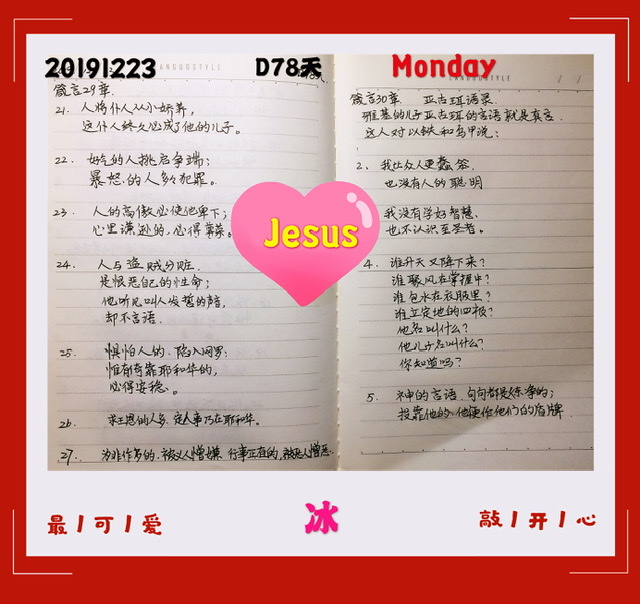 20191223 D78天 Monday
箴言29章.
21. 人将仆人从小娇养,
这仆人终久必成了他的儿子。
22. 好气的人挑启争端;
暴怒的人多多犯罪。
23. 人的高傲必使他卑下;
心里谦逊的,必得尊荣。
24. 人与盗贼分赃,
是恨恶自己的性命;
他听见叫人发誓的声音,
却不言语.
25. 惧怕人的,陷入网罗;
惟有倚靠耶和华的,
必得安稳。
26. 求王恩的人多,定人事乃在耶和华。
27. 为非作歹的,被义人憎嫌 行事正直的,被恶人憎恶.
箴言30章 亚古珥语录.
雅基的儿子亚古珥的言语就是真言.
这人对以铁和乌甲说:
2. 我比众人更蠢笨
也没有人的聪明
我没有学好智慧,
也不认识至圣者。
4. 谁升天又降下来?
谁聚风在掌握中?
谁包水在衣服里?
谁立定地的四极?
他名叫什么?
他儿子名叫什么?
你知道吗?
5. 神的言语,句句都是炼净的;
投靠他的,他便作他们的盾牌
Jesus
最|可|爱
冰
敲|开|心